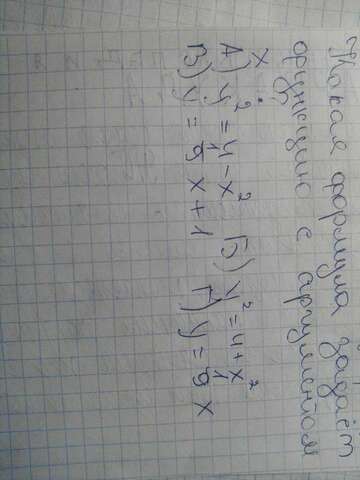 Какая формула задаёт
функцию с аргументом
x?
А) y² = 4 - x² Б) y² = 4 + x²
В) y = 1/9 x + 1 Г) y = 1/9 x